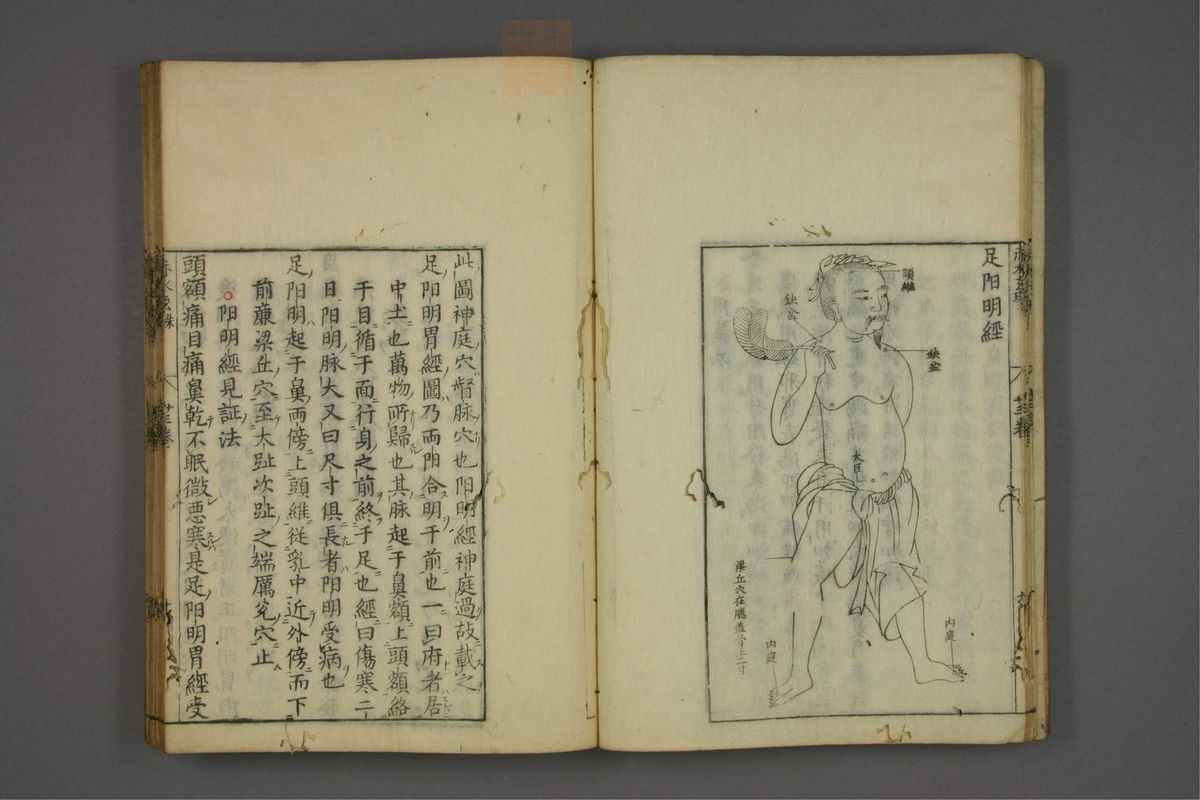 足阳明經
頭維
缺盆
缺盆
大巨
梁丘穴在膝蓋骨上二寸
内庭
内庭
廿三卷
此圖神庭穴督脉穴也阳明經神庭過故載之
足阳明胃經圖乃两阳合明于前也一曰府者居
中土也萬物所歸也其脉起于鼻額上頭額絡
于目循于面行身之前終于足也經曰傷寒二
日阳明脉大又曰尺寸俱長者阳明受病也
足阳明起于鼻两傍上頭維從乳中近外傍而下
前廉梁丘穴至大趾次趾之端厲兊穴止
阳明經見証法
頭額痛目痛鼻乾不眠微惡寒是足阳明胃經受
赤水玄珠
廿三卷